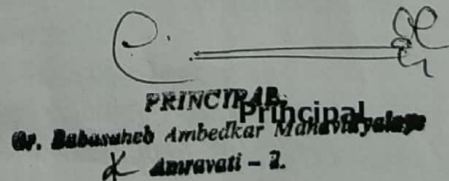 PRINCIPAL
Principal
Dr. Babasaheb Ambedkar Mahavidyalaya
Amravati - 2.